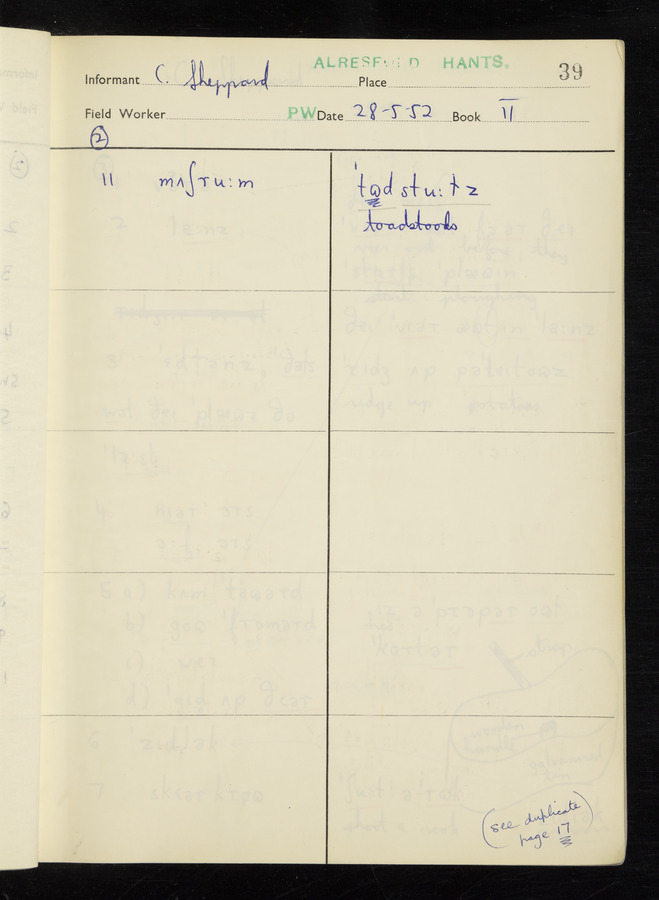 ALRESFORD HANTS.
Informant C. Sheppard Place 39
Field Worker PW Date 28-5-52 Book II
②
11 mʌʃru:m 'tɷdstu:ɫz
toadstools
(see duplicate
page 17)